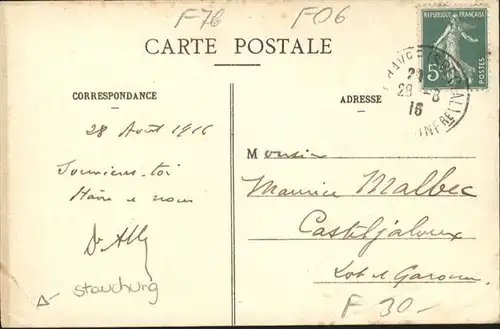 F-76
F-06
CARTE POSTALE
RÉPUBLIQUE FRANÇAISE
5c
POSTES
HAVRE
28 - 8
16
INFRE
CORRESPONDANCE
ADRESSE
28 Août 1916
Souviens-toi
Havre
nous
Dr
stauchung
Monsieur
Maurice Malbec
Casteljaloux
Lot et Garonne
F 30-